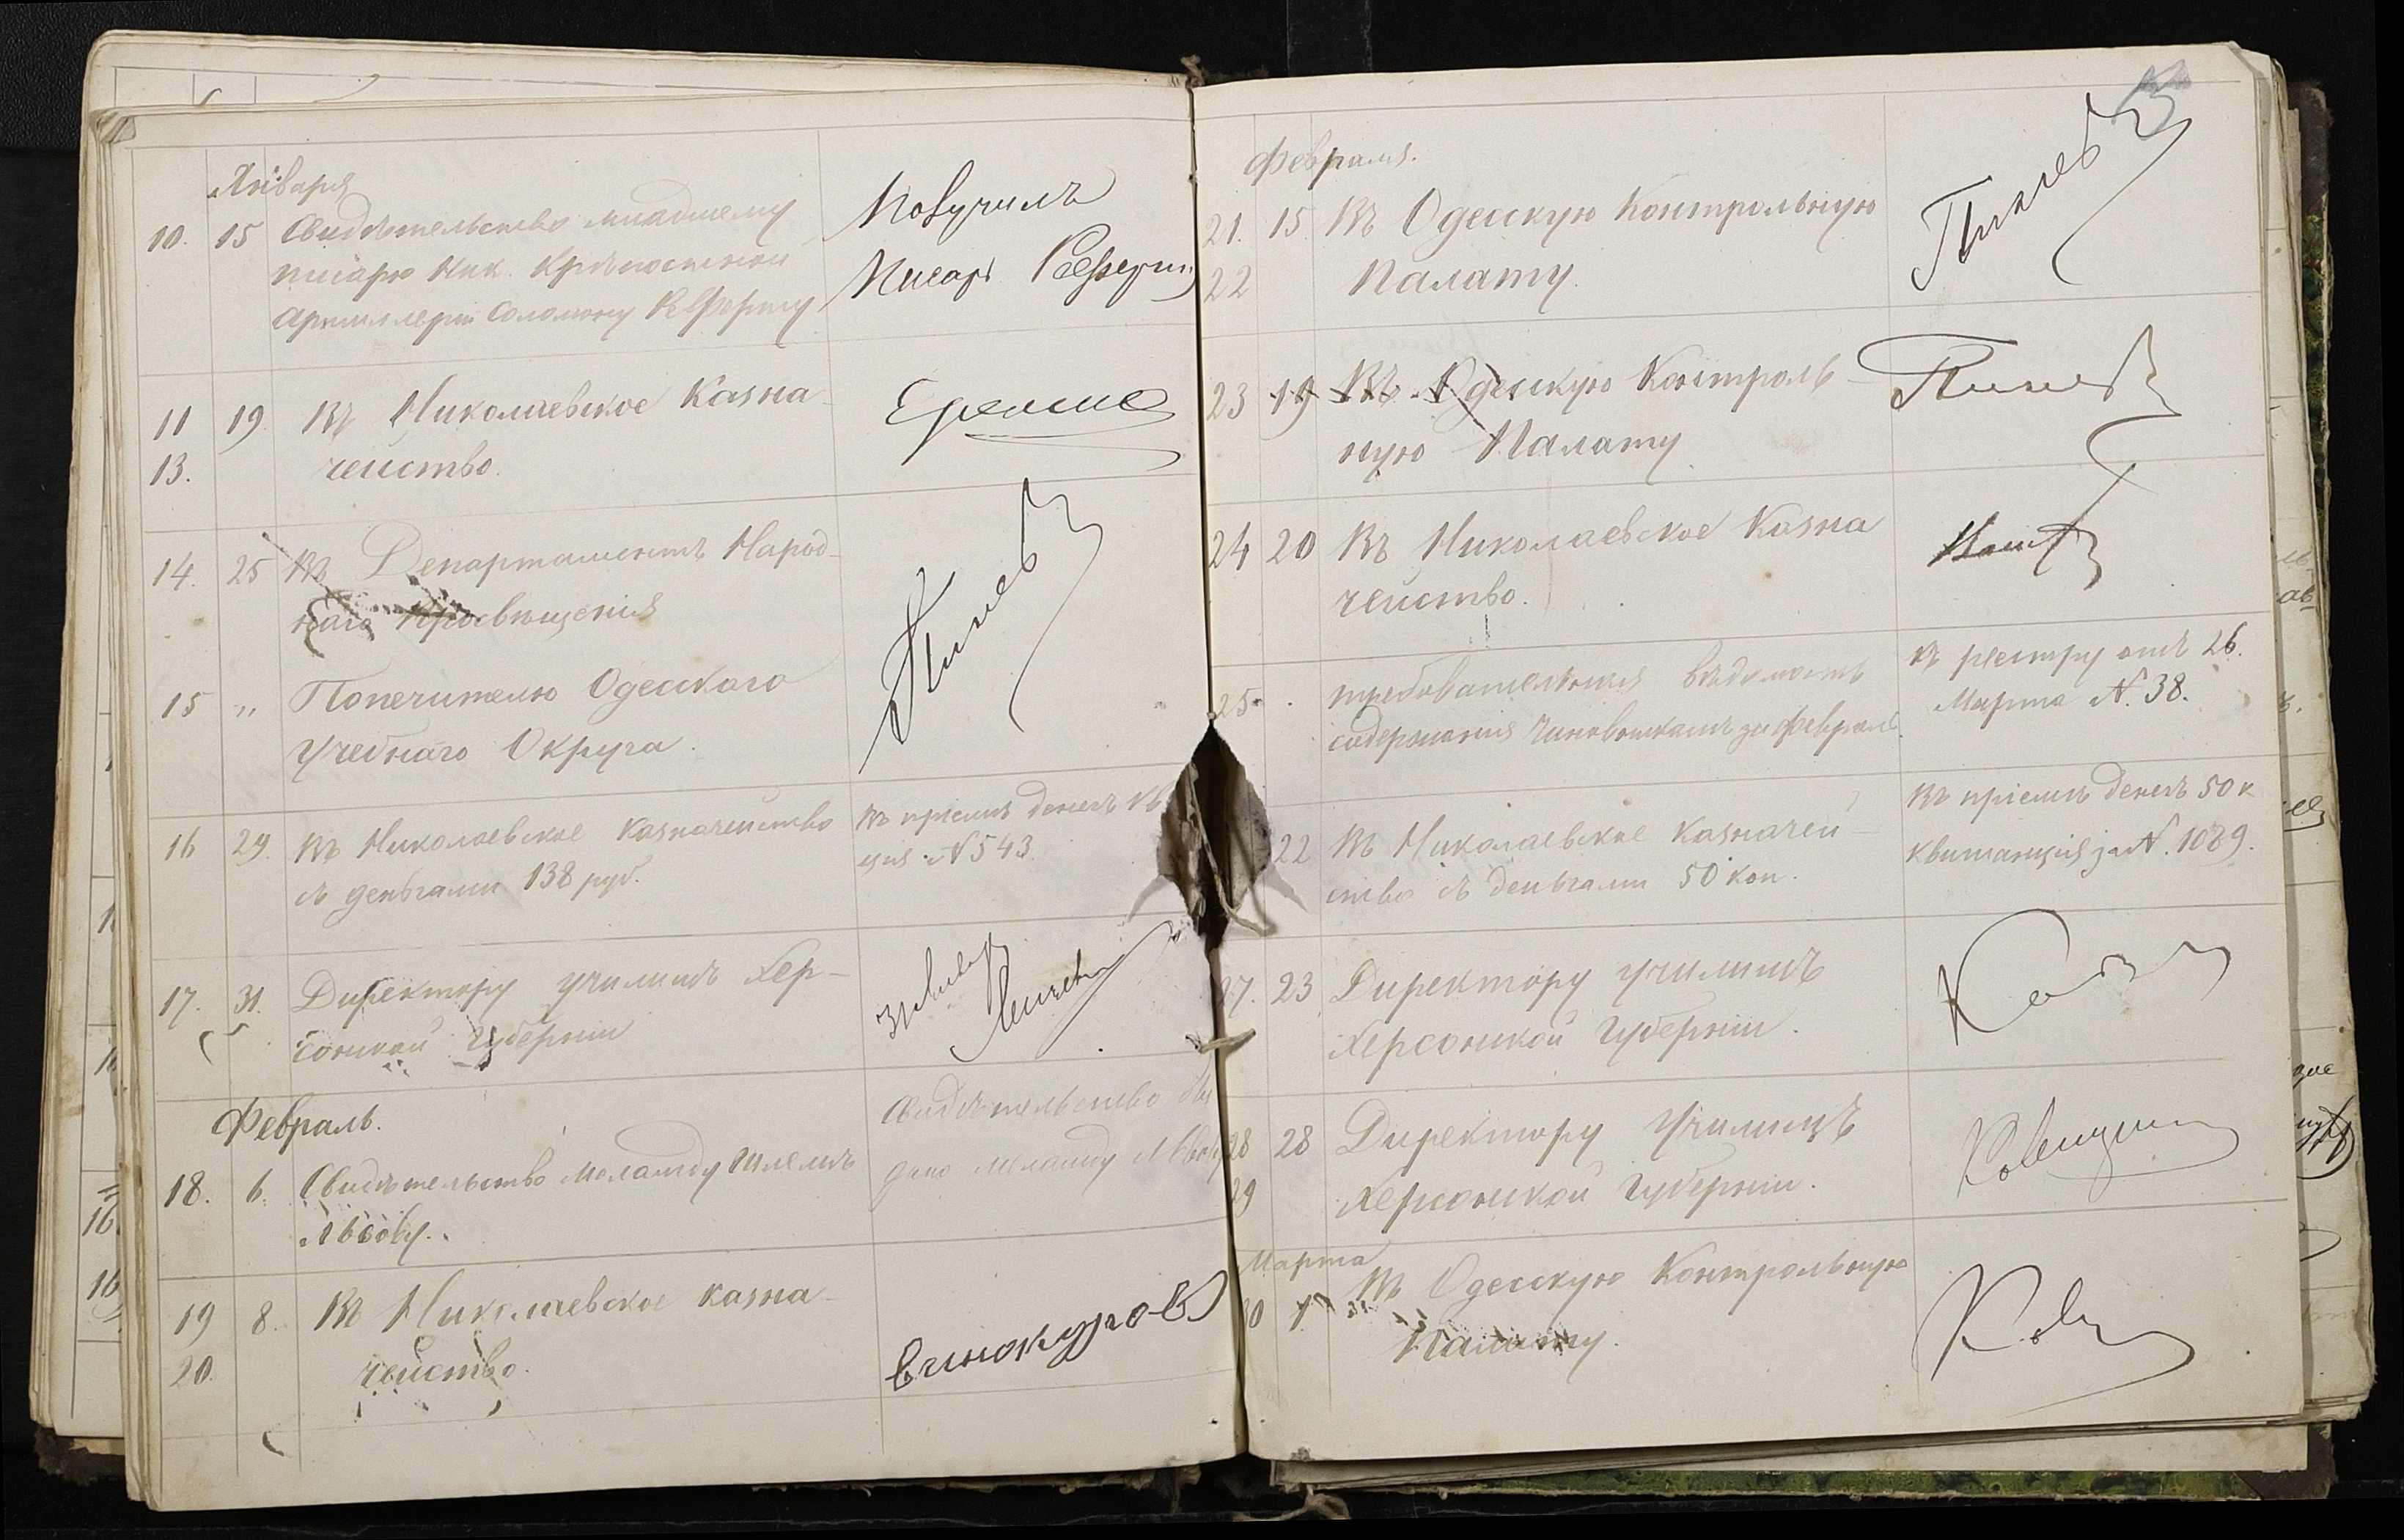 Января
10. 15 Свидѣтельство младшему
писарю Ник. Крѣпостной
Артиллеріи Соломону Рефферту
Получилъ
Писарь
11 19 Въ Николаевское Казна-
13. чейство.
14. 25 Въ Департаментъ Народ-
наго Просвѣщенія
15 „ Попечителю Одесскаго
Учебнаго Округа.
16 29. Въ Николаевское Казначейство
съ деньгами 138 руб.
Въ пріемѣ денегъ кв
ція № 543
17. 31. Директору училищъ Хер-
сонской Губерніи
Февраль.
18. 6. Свидѣтельство Меламду Шлемѣ
Львову.
Свидѣтельство вы
дано меламду Львову
19 8. Въ Николаевское казна-
20. чейство.
Винокуровъ
Февраля.
21. 15 Въ Одесскую Контрольную
22 Палату.
23 19 Въ Одесскую Контроль-
ную Палату
24 20 Въ Николаевское Казна
чейство.
25. требовательныя вѣдомость
содержанія Чиновникамъ за февраль.
Къ реестру отъ 26.
Марта №. 38.
22 Въ Николаевское Казначей-
ство съ деньгами 50 коп.
Въ пріемѣ денегъ 50 к
Квитанція за №. 1089.
27. 23 Директору училищъ
Херсонской Губерніи.
28 28 Директору Училищъ
29 Херсонской Губерніи.
Марта
30 1 Въ Одесскую Контрольную
Палату.